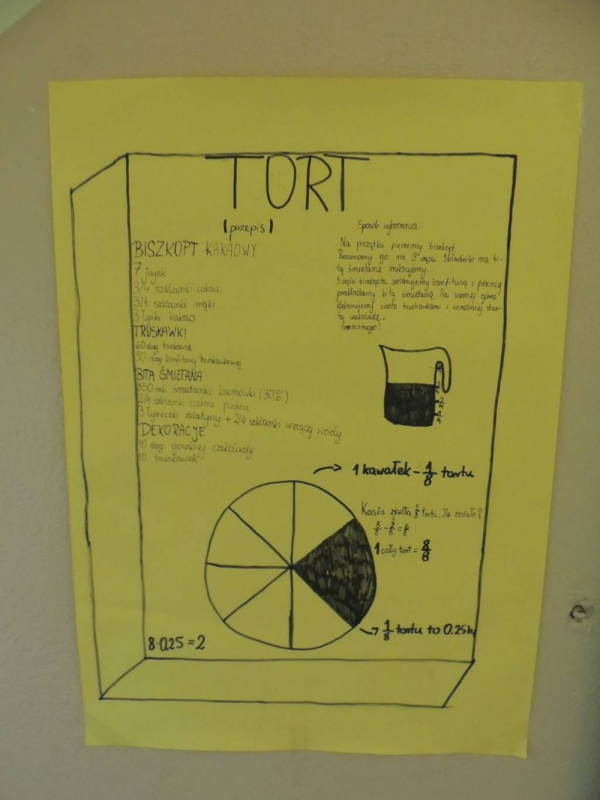 TORT
(przepis)
BISZKOPT KAKAOWY
7 jajek
3/4 szklanki cukru
3/4 szklanki mąki
3 łyżki kakao
TRUSKAWKI
60 dag truskawek
30 dag konfitury truskawkowej
BITA ŚMIETANA
350 ml śmietanki kremówki (30%)
2/4 szklanki cukru pudru
3 łyżeczki żelatyny + 2/4 szklanki wrzącej wody
DEKORACJE
10 dag gorzkiej czekolady
10 truskawek
Sposób wykonania:
Na początku pieczemy biszkopt.
Rozcinamy go na 3 części. Składniki na bi-
tą śmietanę miksujemy.
3 części biszkoptu smarujemy konfiturą i później
przekładamy bitą śmietaną. Na samej górze
dekorujemy ciasto truskawkami i wcześniej star-
tą czekoladą.
Smacznego!
1 kawałek - 1/8 tortu
Kasia zjadła tortu. Ile zostało?
1 cały tort = 8/8
1/8 tortu to 0.25
8·0.25=2